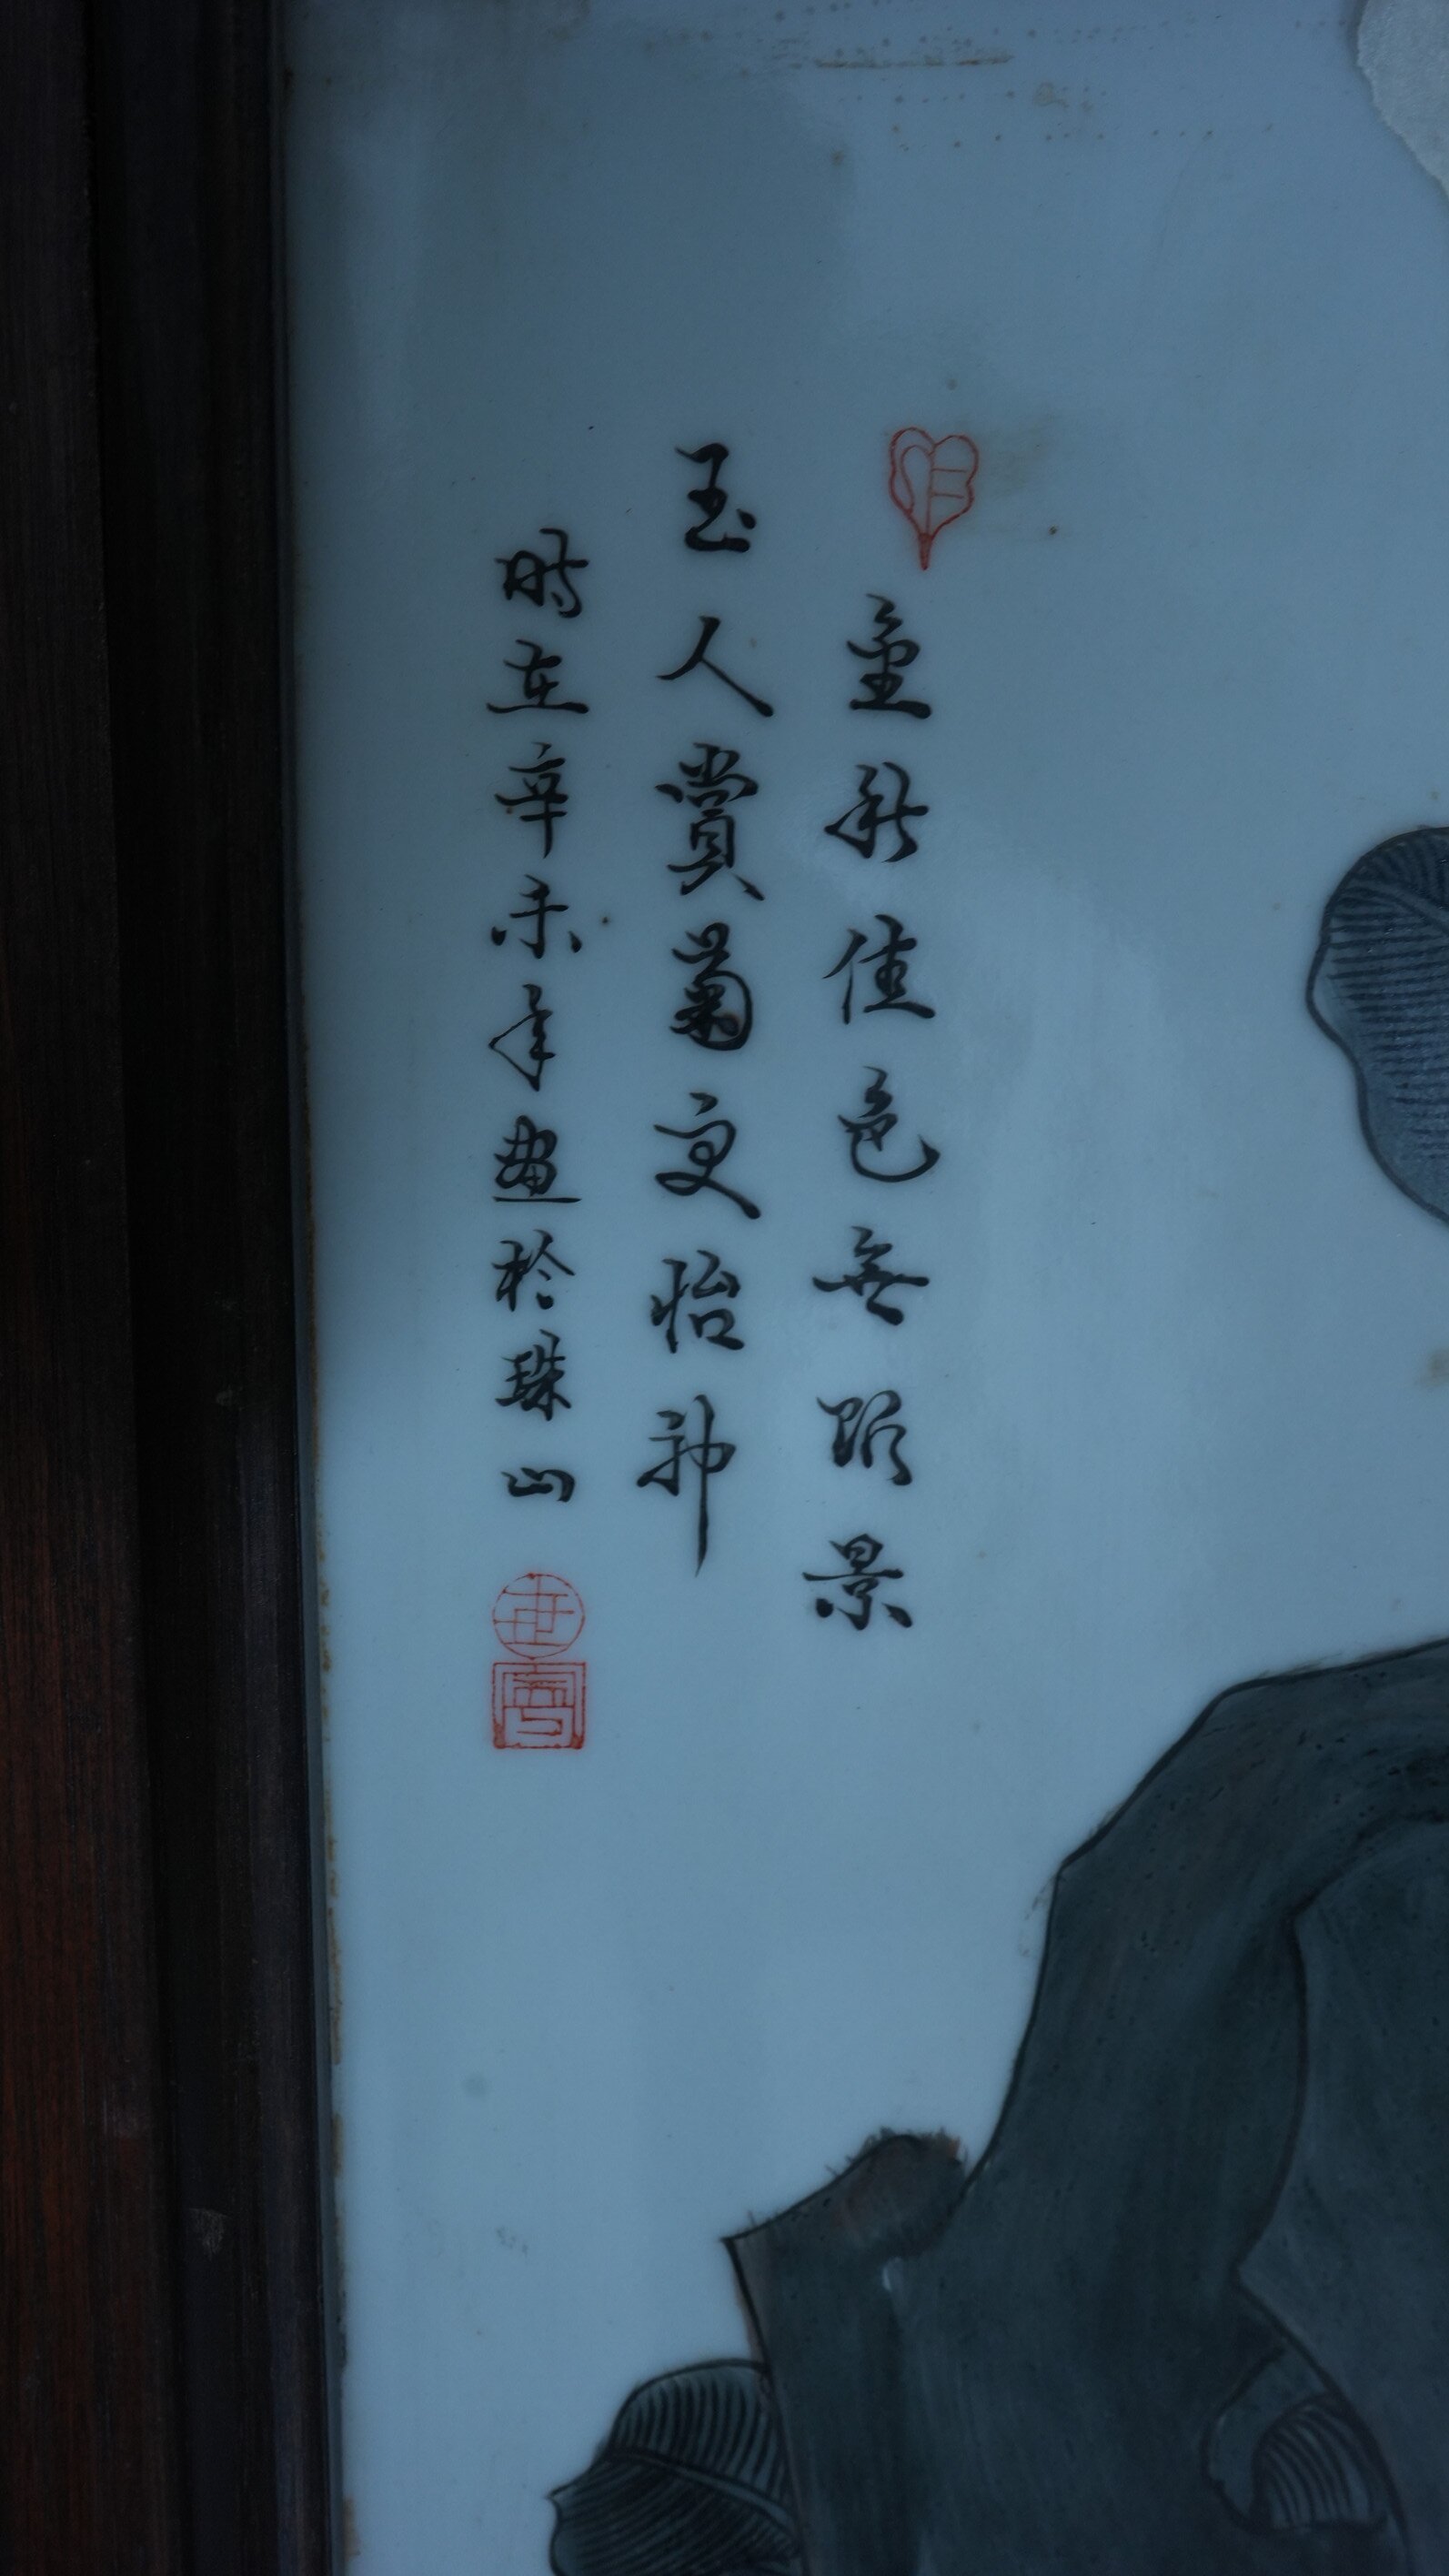 金秋佳色無限景
玉人賞菊更怡神
時在辛未年畫於珠山